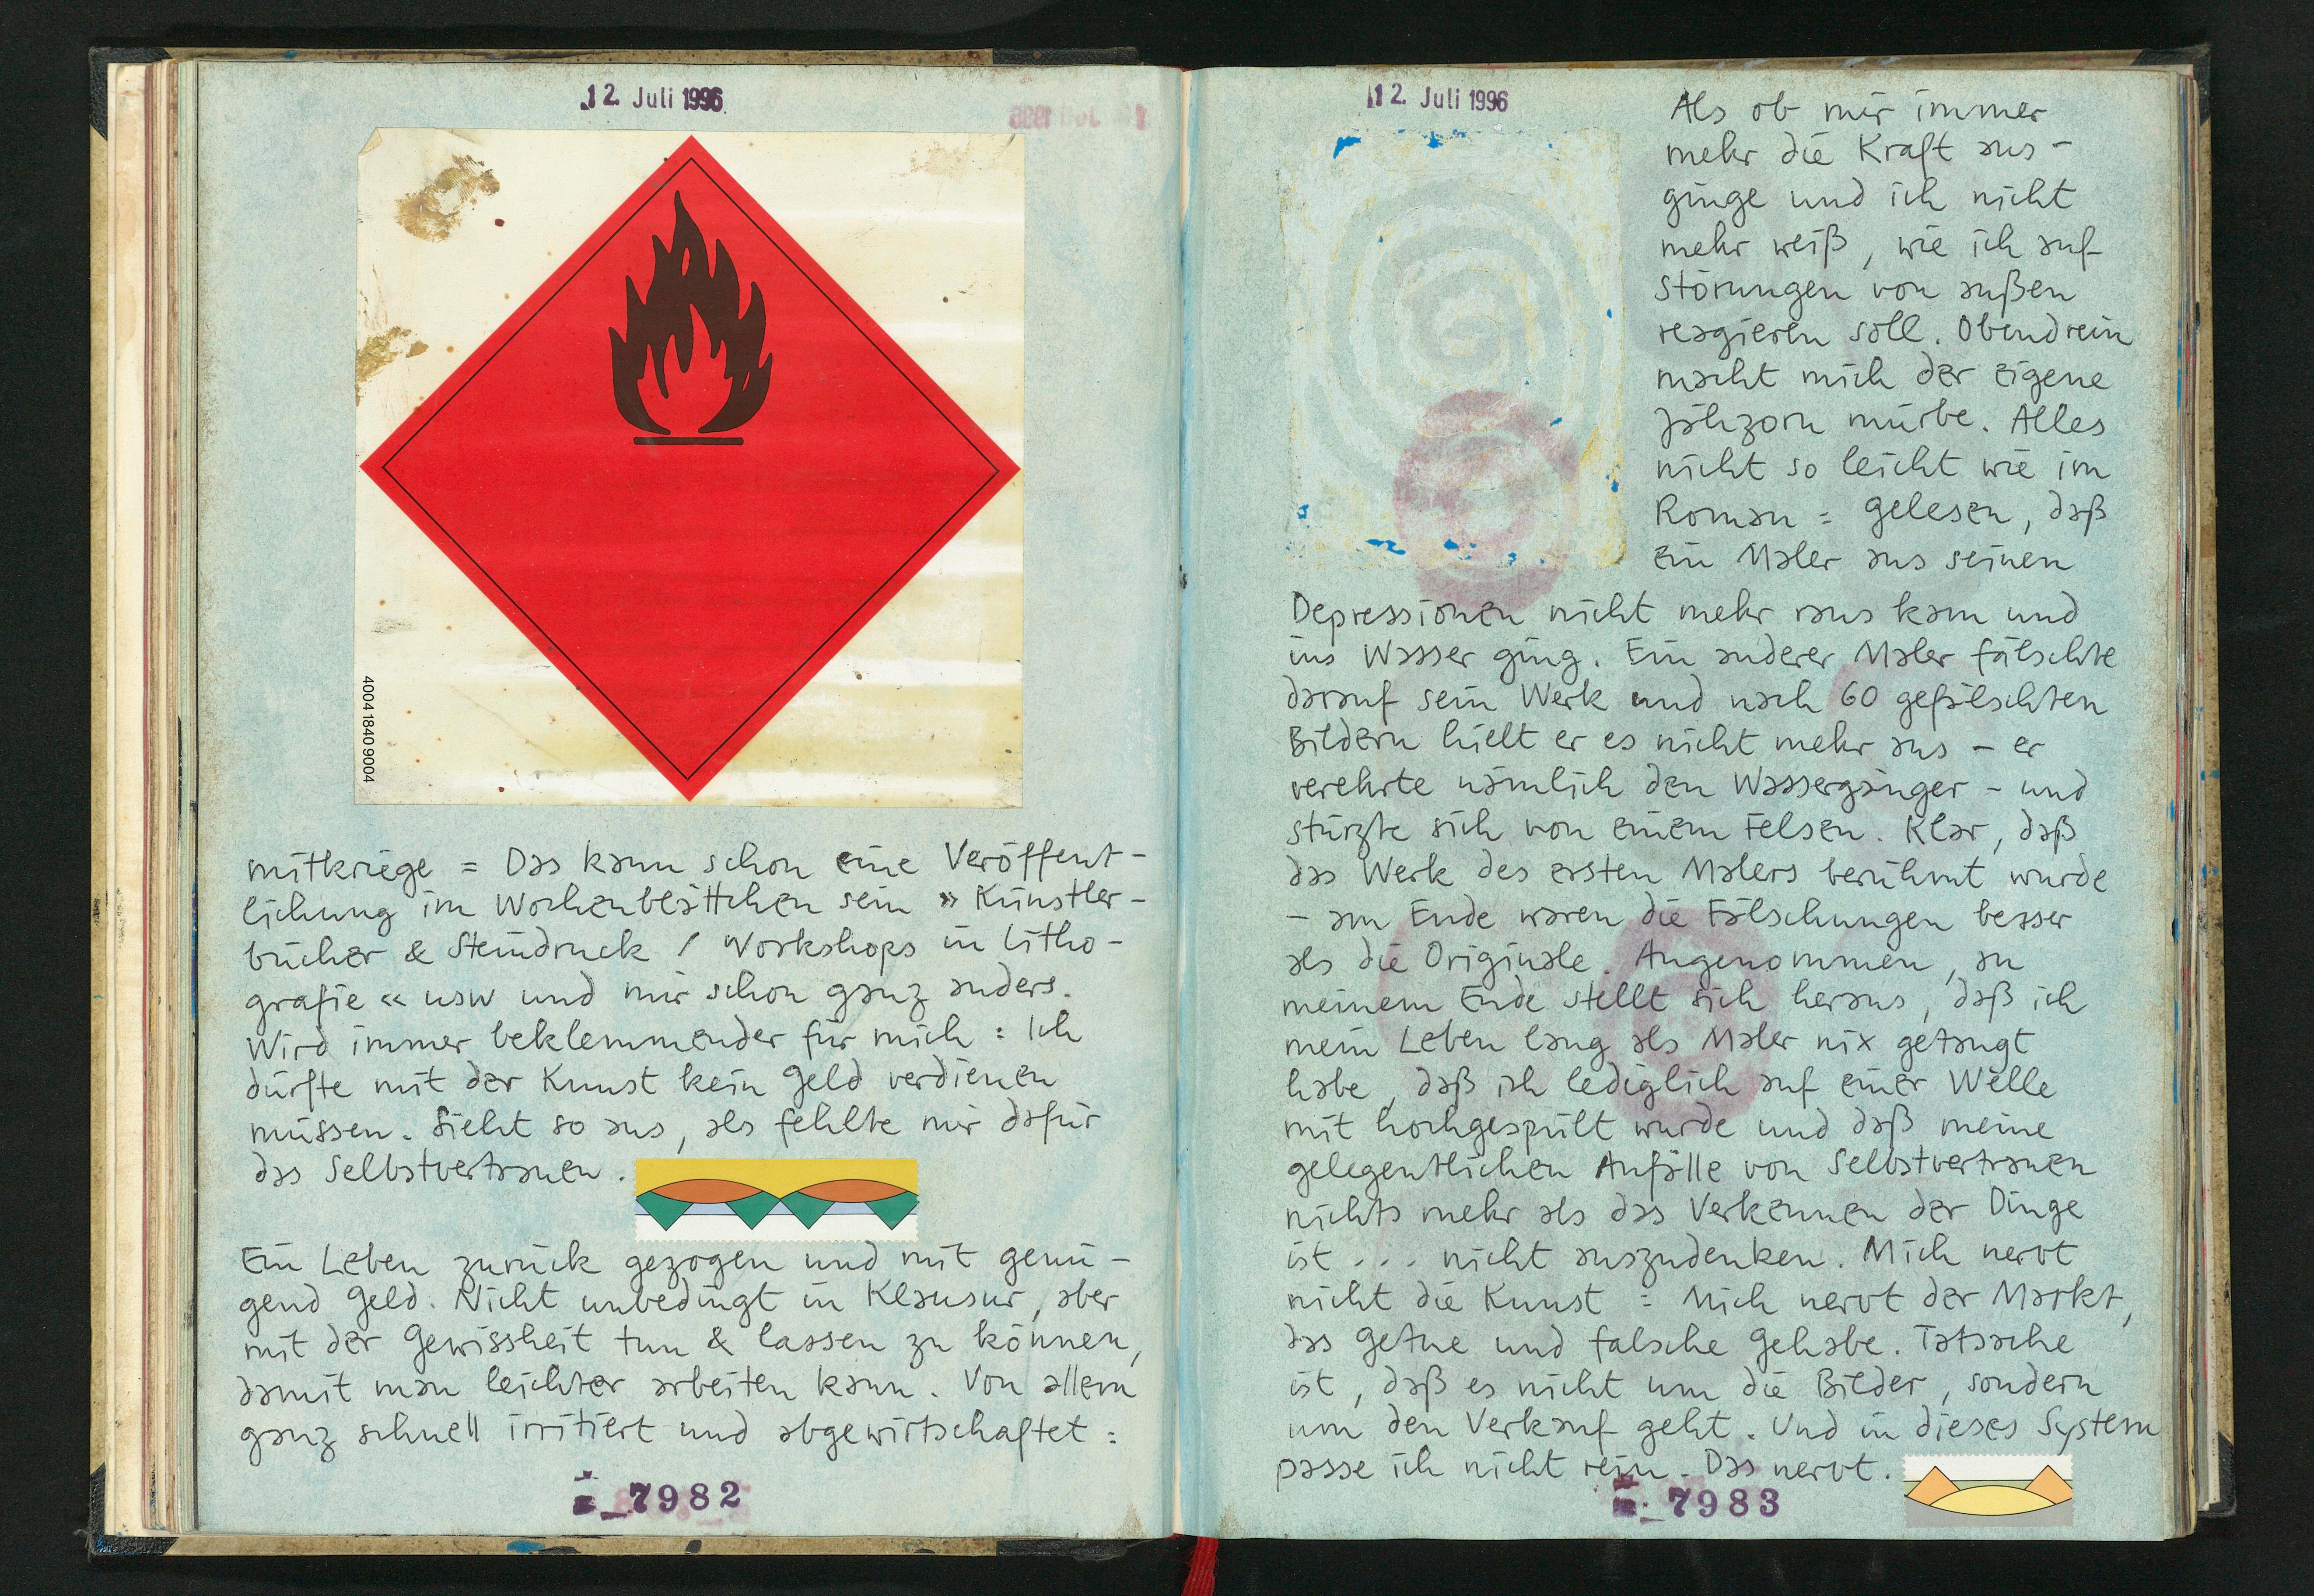 12. Juli 1996
4004 1840 9004
mitkriege = Das kann schon eine Veröffent-
lichung im Wochenblättchen sein » Künstler-
bücher & Steindruck / Workshops in Litho-
grafie « usw und mir schon ganz anders.
Wird immer beklemmender für mich : Ich
dürfte mit der Kunst kein Geld verdienen
müssen. Sieht so aus, als fehlte mir dafür
das Selbstvertrauen.
Ein Leben zurück gezogen und mit genü-
gend Geld. Nicht unbedingt in Klausur, aber
mit der Gewissheit tun & lassen zu können,
damit man leichter arbeiten kann. Von allem
ganz schnell irritiert und abgewirtschaftet :
7982
12. Juli 1996
Als ob mir immer
mehr die Kraft aus-
ginge und ich nicht
mehr weiß, wie ich auf
Störungen von außen
reagieren soll. Obendrein
macht mich der eigene
Jähzorn mürbe. Alles
nicht so leicht wie im
Roman = gelesen, daß
ein Maler aus seinen
Depressionen nicht mehr raus kam und
ins Wasser ging. Ein anderer Maler fälschte
darauf sein Werk und nach 60 gefälschten
Bildern hielt er es nicht mehr aus – er
verehrte nämlich den Wassergänger – und
stürzte sich von einem Felsen. Klar, daß
das Werk des ersten Malers berühmt wurde
– am Ende waren die Fälschungen besser
als die Originale. Angenommen, an
meinem Ende stellt sich heraus, daß ich
mein Leben lang als Maler nix getaugt
habe, daß ich lediglich auf einer Welle
mit hochgespült wurde und daß meine
gelegentlichen Anfälle von Selbstvertrauen
nichts mehr als das Verkennen der Dinge
ist ... nicht auszudenken. Mich nervt
nicht die Kunst : Mich nervt der Markt,
das Getue und falsche Gehabe. Tatsache
ist, daß es nicht um die Bilder, sondern
um den Verkauf geht. Und in dieses System
passe ich nicht rein. Das nervt.
7983